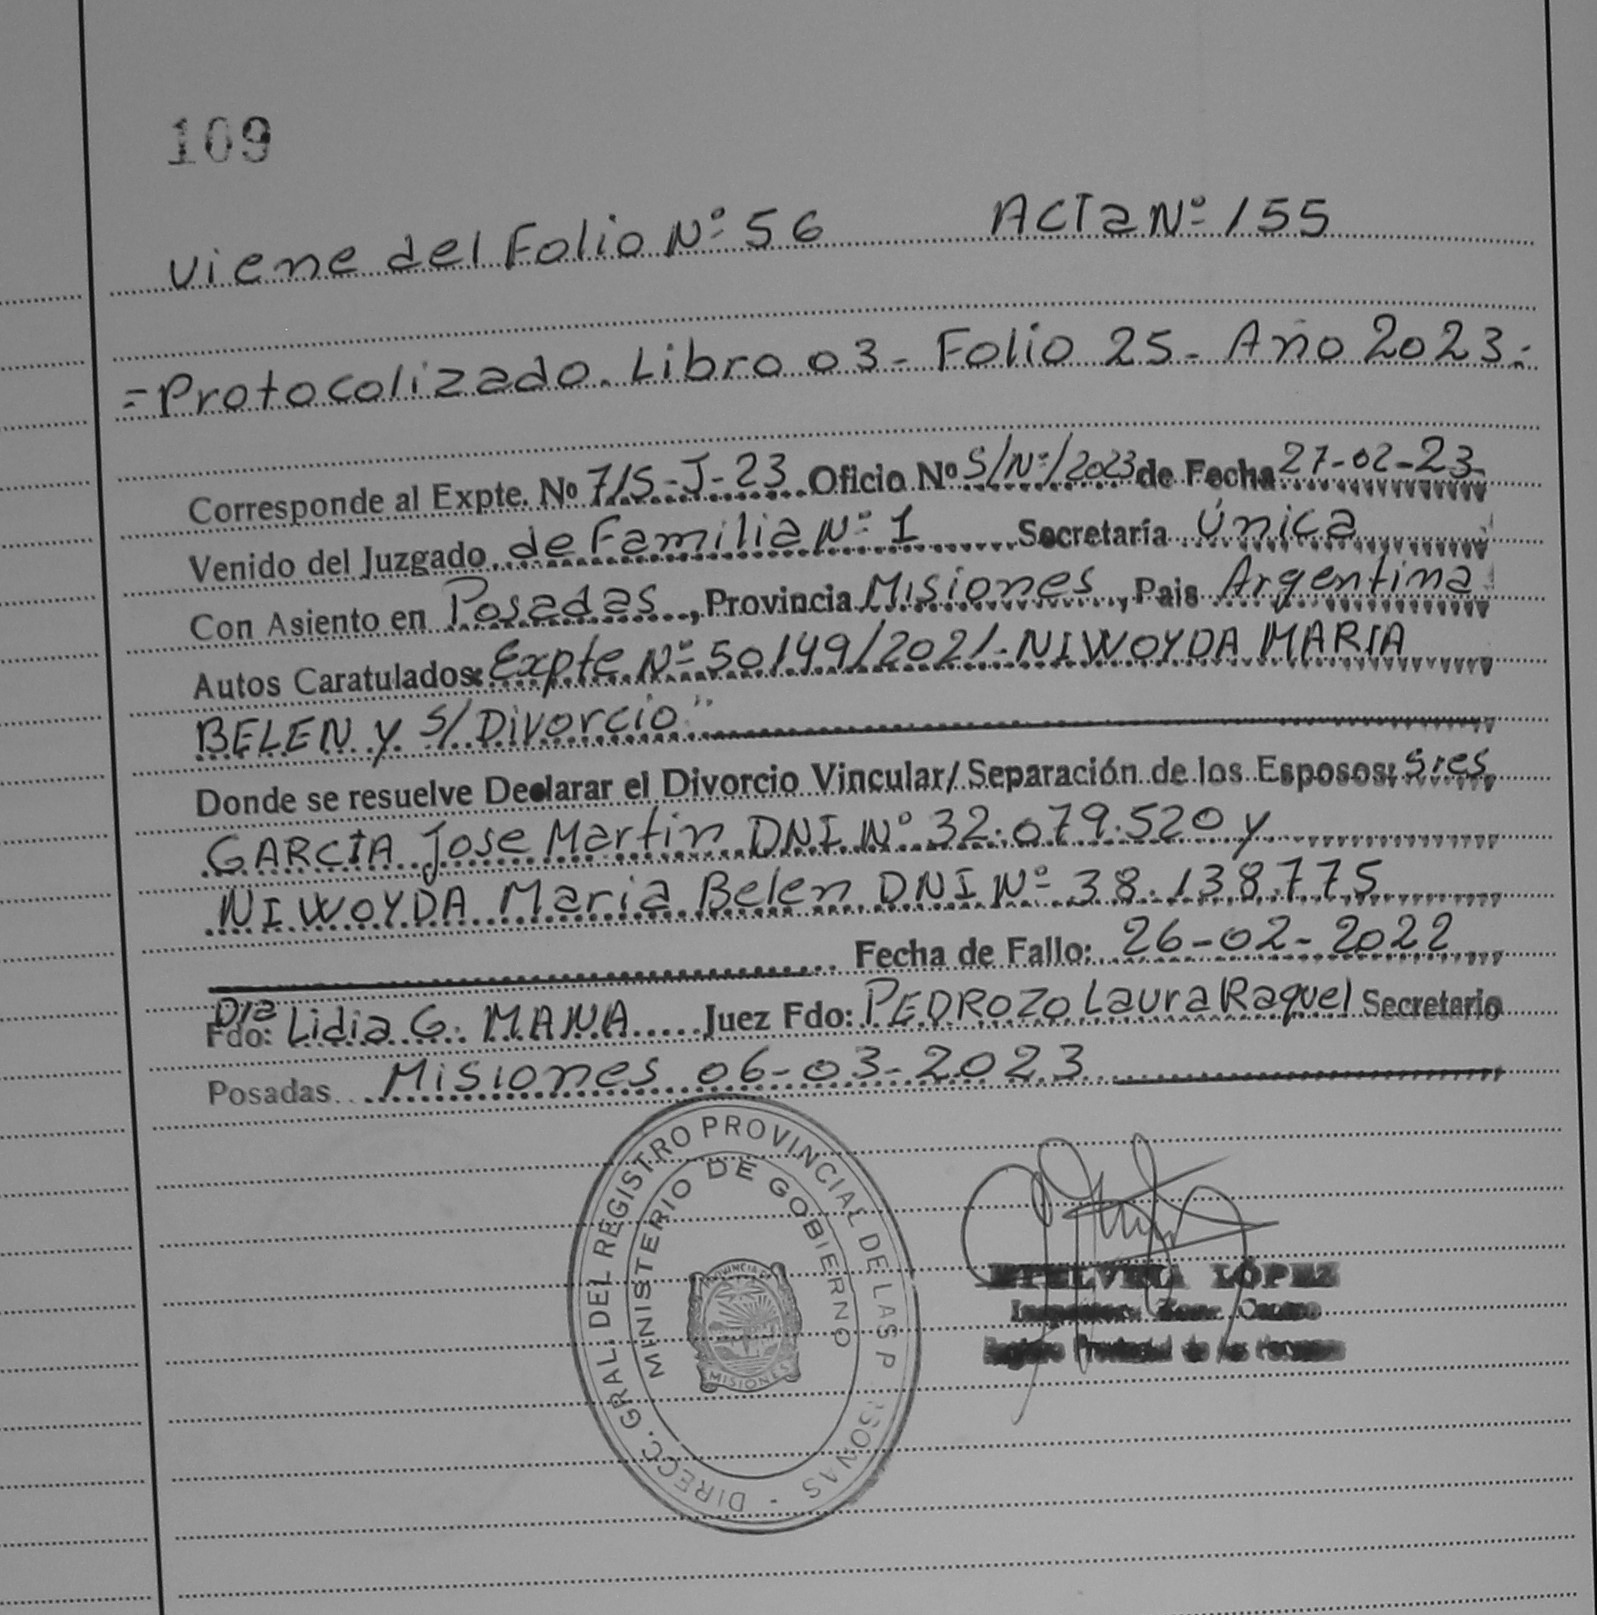 109
Viene del Folio Nº 56 Acta Nº 155
=Protocolizado. Libro 03- Folio 25- Año 2023:
Corresponde al Expte. Nº 715-J-23 Oficio Nº S/Nº/2023 de Fecha 27-02-23
Venido del Juzgado de Familia Nº 1 Secretaría Única
Con Asiento en Posadas, Provincia Misiones, Pais Argentina
Autos Caratulados: Expte Nº 50149/2021-NIWOYDA MARIA
BELEN y S/Divorcio"
Donde se resuelve Declarar el Divorcio Vincular/ Separación de los Esposos: Sres
GARCIA Jose Martin DNI Nº 32.079.520 y
NIWOYDA Maria Belen DNI Nº 38.138.775
Fecha de Fallo: 26-02-2022
Dra
Fdo: Lidia G. MANA Juez Fdo: PEDROZO Laura Raquel Secretario
Posadas Misiones 06-03-2023
DIRECC. GRAL. DEL REGISTRO PROVINCIAL DE LAS P RSONAS -
MINISTERIO DE GOBIERNO
PROVINCIA DE
MISIONES
ETELVINA LÓPEZ
Zona Centro
Registro Provincial de las Personas